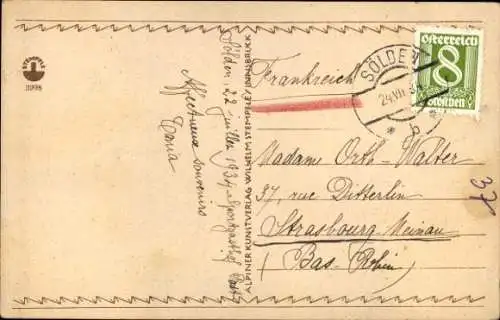 STEMPFLE
Sölden, 22 juillet 1934
Affectueux souvenirs
ALPINER KUNSTVERLAG WILHELM STEMPFLE, INNSBRUCK
Frankreich
SÖLDEN
24.VII.
Österreich
8
Groschen
Madame Orth-Walter
37, rue Ditterlin
Strasbourg-Meinau
(Bas-Rhin)
37